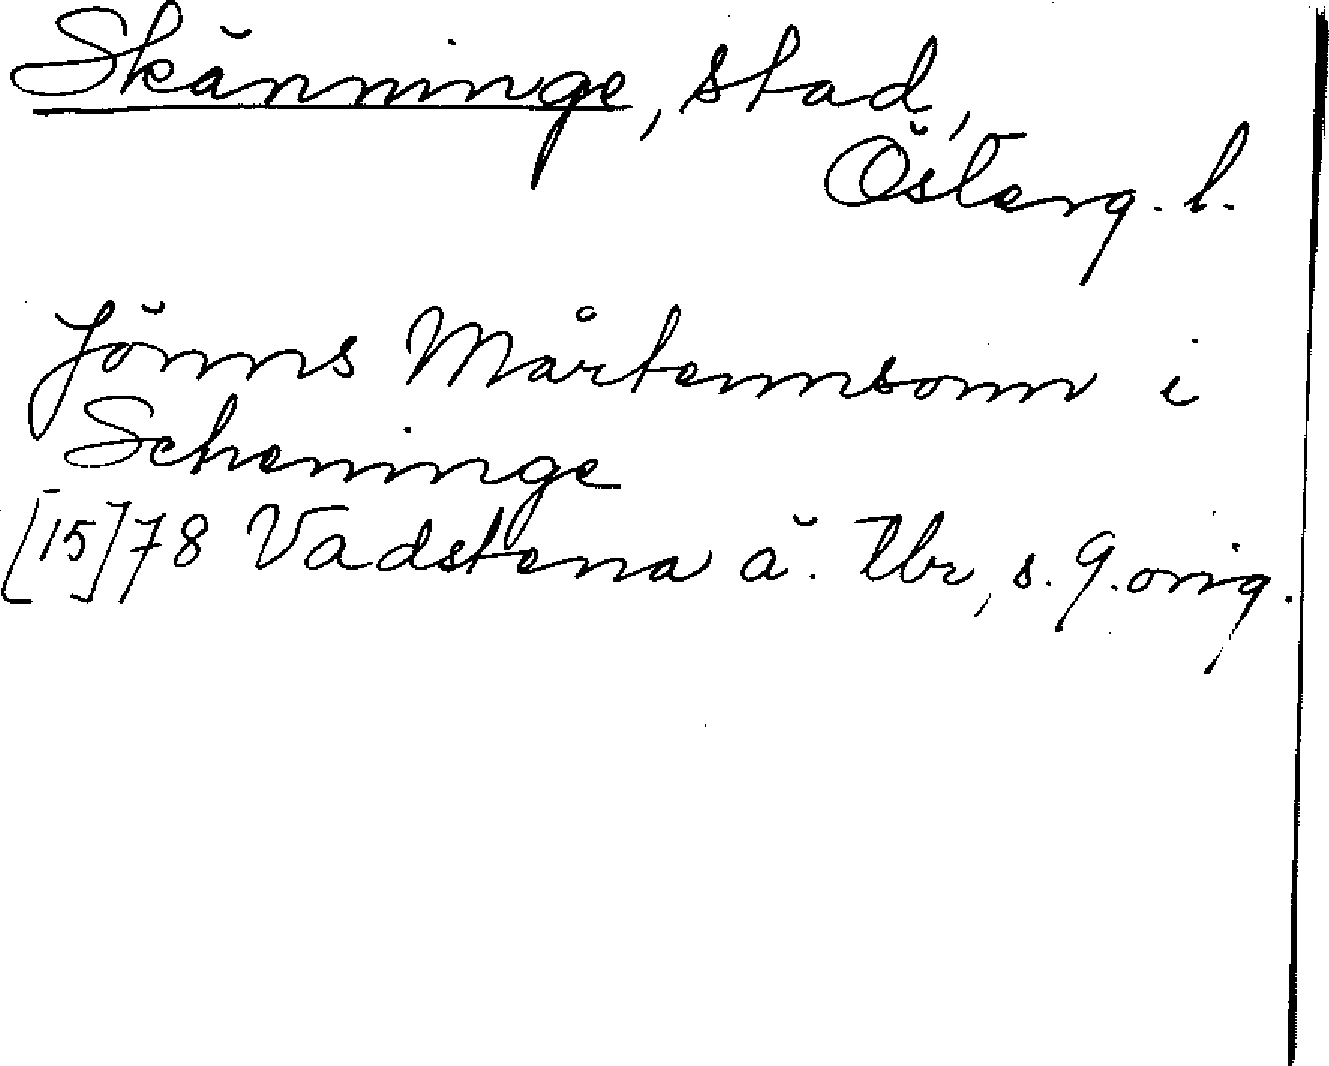 Skänninge, stad,
Österg. l.
Jönns Mårtennsonn i
Scheninge
[15]78 Vadstena ä. tbr, s. 9. orig.